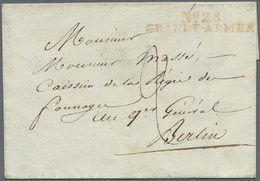 No. 28
GRANDE-ARMÉE
Monsieur
Monsieur Massé,
Caissier de la Régie des
fourrages
au qer Général
Berlin